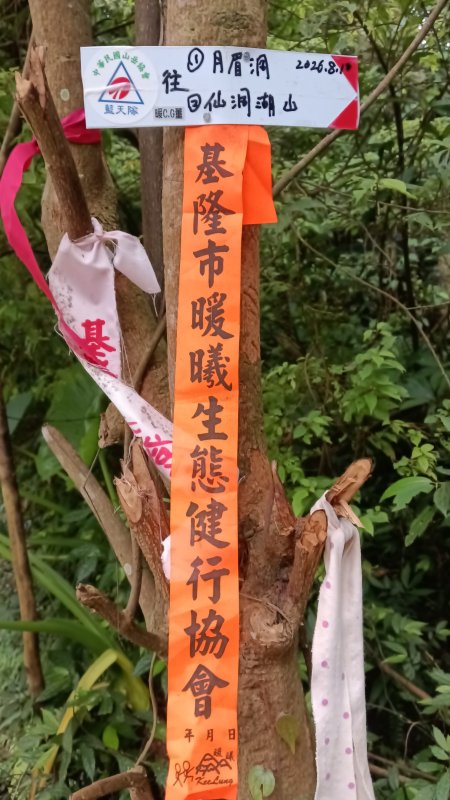 中華民國山岳協會
藍天隊
暖C.G董
往
①月眉洞
2026.8.1
②仙洞湖山
基隆市暖曦生態健行協會
年 月 日
KeeLung
基